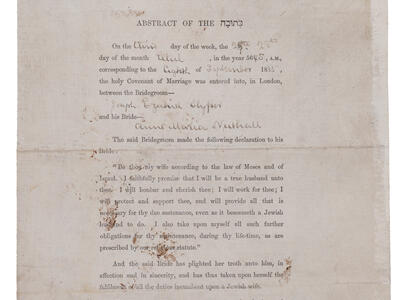 ABSTRACT OF THE כתובה
On the day of the week, the
day of the month Elul, in the year 564, A.M.
corresponding to the of September 18
, the Covenant of Marriage was entered into, in London,
between the Bridegroom—
Joseph
and his Bride—
Anne Maria
The said Bridegroom made the following declaration to his
Bride:
"Be thou my wife according to the law of Moses and of
Israel. I faithfully promise that I will be a true husband unto
thee. I will honour and cherish thee; I will work for thee; I
will protect and support thee, and will provide all that is
necessary for thy due sustenance, even as it beseemeth a Jewish
husband to do. I also take upon myself all such further
obligations for thy maintenance, during thy life-time, as are
prescribed by our religious statute."
And the said Bride has plighted her troth unto him, in
affection and in sincerity, and has thus taken upon herself the
fulfilment of all the duties incumbent upon a Jewish wife.